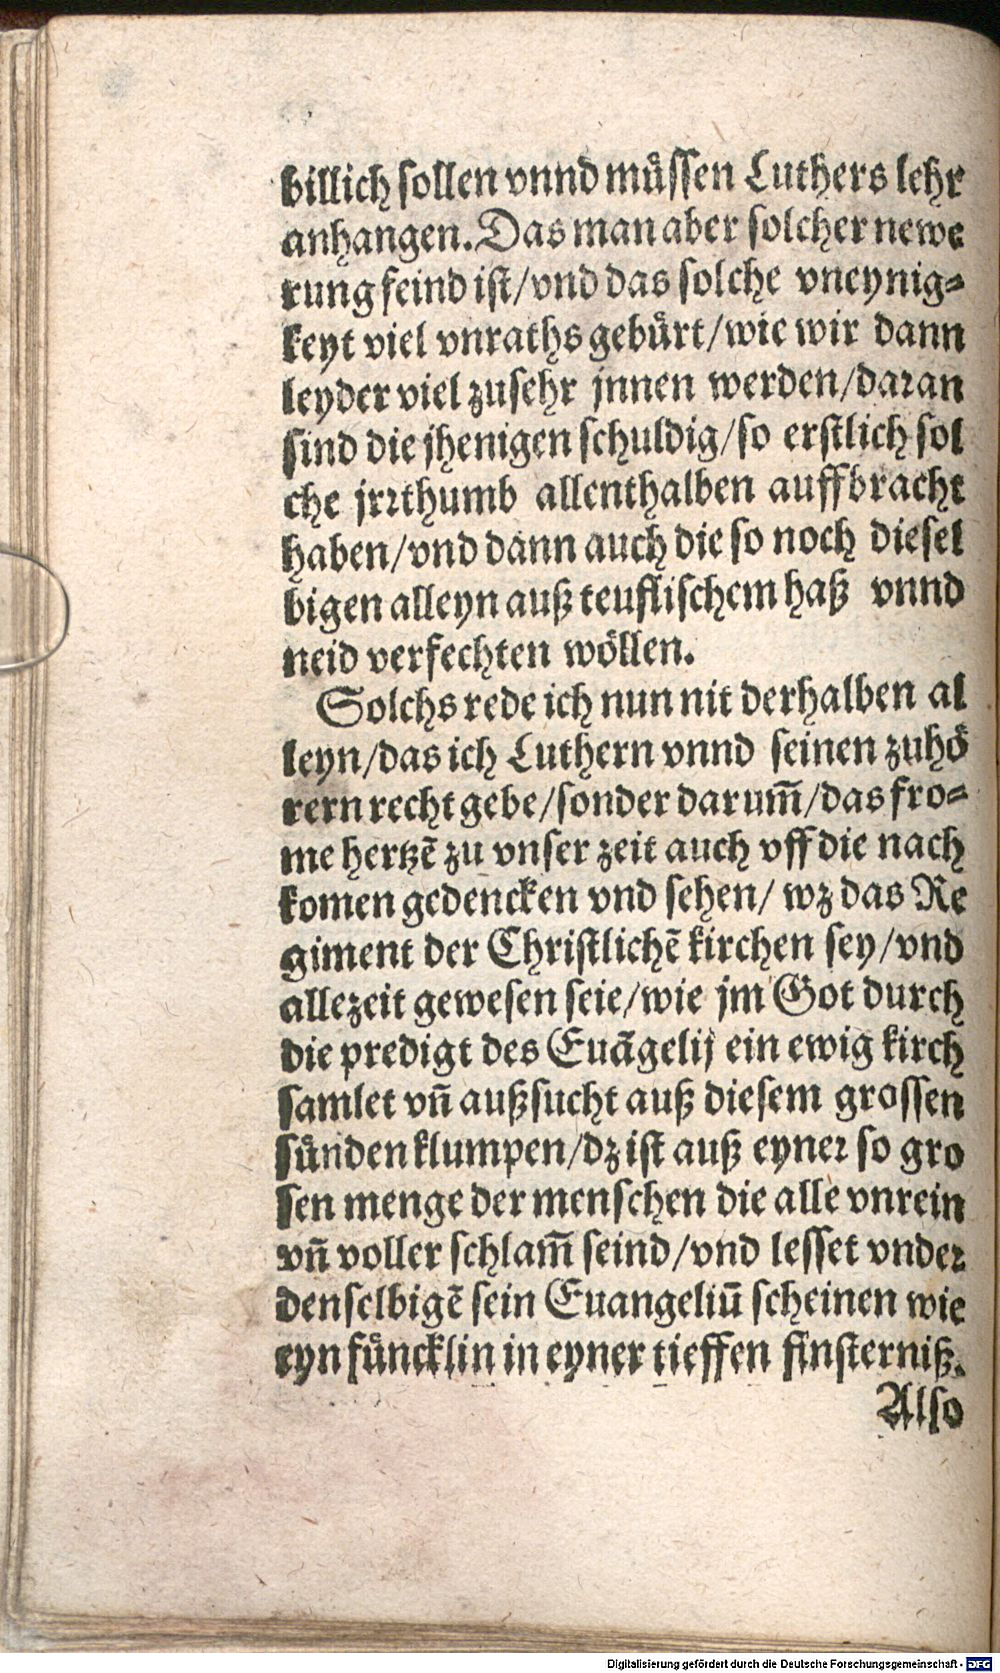 billich sollen vnnd müssen Luthers lehr
anhangen. Das man aber solcher newe
rung feind ist/vnd das solche vneynig⸗
keyt viel vnraths gebürt/wie wir dann
leyder viel zusehr jnnen werden/daran
sind die jhenigen schuldig/so erstlich sol
che jrrthumb allenthalben auffbracht
haben/vnd dann auch die so noch diesel
bigen alleyn auß teuflischem haß vnnd
neid verfechten wöllen.
Solchs rede ich nun nit derhalben al
leyn/das ich Luthern vnnd seinen zuhö
rern recht gebe/sonder darum̃/das fro⸗
me hertzẽ zu vnser zeit auch vff die nach
komen gedencken vnd sehen/ wz das Re
giment der Christlichẽ kirchen sey/vnd
allezeit gewesen seie/wie jm Got durch
die predigt des Euãgelij ein ewig kirch
samlet vñ außsucht auß diesem grossen
sünden klumpen/dz ist auß eyner so gro
sen menge der menschen die alle vnrein
vñ voller schlam̃ seind/vnd lesset vnder
denselbigẽ sein Euangeliũ scheinen wie
eyn füncklin in eyner tieffen finsterniß.
Also
Digitalisierung gefördert durch die Deutsche Forschungsgemeinschaft - DFG